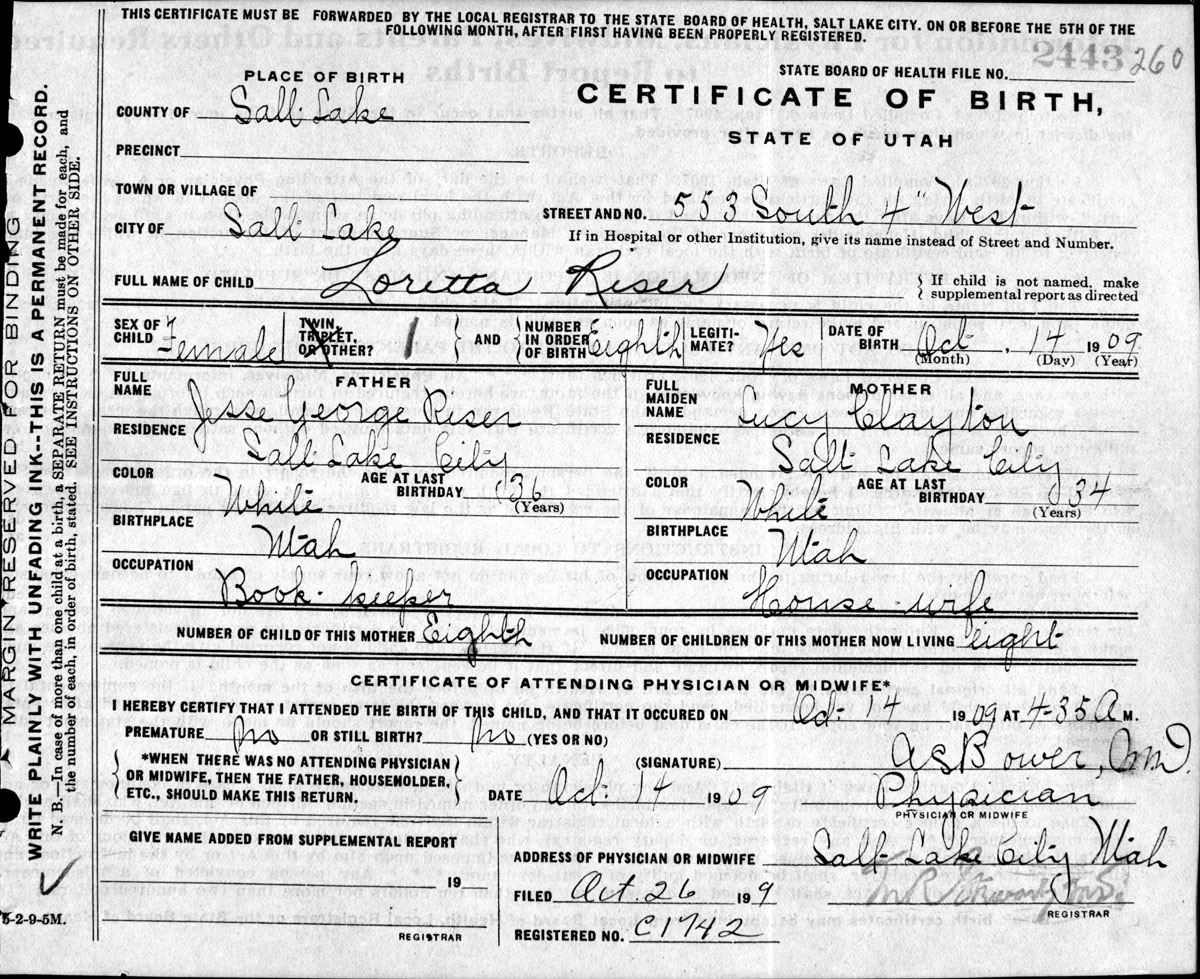 THIS CERTIFICATE MUST BE FORWARDED BY THE LOCAL REGISTRAR TO THE STATE BOARD OF HEALTH, SALT LAKE CITY, ON OR BEFORE THE 5TH OF THE
FOLLOWING MONTH, AFTER FIRST HAVING BEEN PROPERLY REGISTERED.
2443 260
PLACE OF BIRTH
STATE BOARD OF HEALTH FILE NO.
COUNTY OF Salt Lake
CERTIFICATE OF BIRTH,
STATE OF UTAH
PRECINCT
TOWN OR VILLAGE OF
STREET AND NO. 553 South 4 West
CITY OF Salt Lake
If in Hospital or other Institution, give its name instead of Street and Number.
FULL NAME OF CHILD Loretta Reser
If child is not named, make
supplemental report as directed
SEX OF CHILD Female
TWIN, TRIPLET, OR OTHER? 1
AND NUMBER IN ORDER OF BIRTH Eighth
LEGITI-MATE? Yes
DATE OF BIRTH Oct. 14 1909
(Month) (Day) (Year)
FATHER
FULL NAME Jesse George Reser
RESIDENCE Salt Lake City
COLOR White
AGE AT LAST BIRTHDAY 36
(Years)
BIRTHPLACE Utah
OCCUPATION Book-keeper
MOTHER
FULL MAIDEN NAME Lucy Clayton
RESIDENCE Salt Lake City
COLOR White
AGE AT LAST BIRTHDAY 34
(Years)
BIRTHPLACE Utah
OCCUPATION House-wife
NUMBER OF CHILD OF THIS MOTHER Eighth
NUMBER OF CHILDREN OF THIS MOTHER NOW LIVING eight
CERTIFICATE OF ATTENDING PHYSICIAN OR MIDWIFE*
I HEREBY CERTIFY THAT I ATTENDED THE BIRTH OF THIS CHILD, AND THAT IT OCCURED ON Oct. 4 1909 AT 4-35 A M.
PREMATURE No OR STILL BIRTH? No (YES OR NO)
*WHEN THERE WAS NO ATTENDING PHYSICIAN
OR MIDWIFE, THEN THE FATHER, HOUSEHOLDER,
ETC., SHOULD MAKE THIS RETURN.
(SIGNATURE) A S Bower, M.D.
DATE Oct. 14 1909
Physician
PHYSICIAN OR MIDWIFE
GIVE NAME ADDED FROM SUPPLEMENTAL REPORT
19
REGISTRAR
ADDRESS OF PHYSICIAN OR MIDWIFE Salt Lake City Utah
FILED Oct. 26 199
REGISTRAR
REGISTERED NO. C1742
MARGIN RESERVED FOR BINDING
WRITE PLAINLY WITH UNFADING INK--THIS IS A PERMANENT RECORD.
N. B.—In case of more than one child at a birth, a SEPARATE RETURN must be made for each, and
the number of each, in order of birth, stated. SEE INSTRUCTIONS ON OTHER SIDE.
5-2-9-5M.